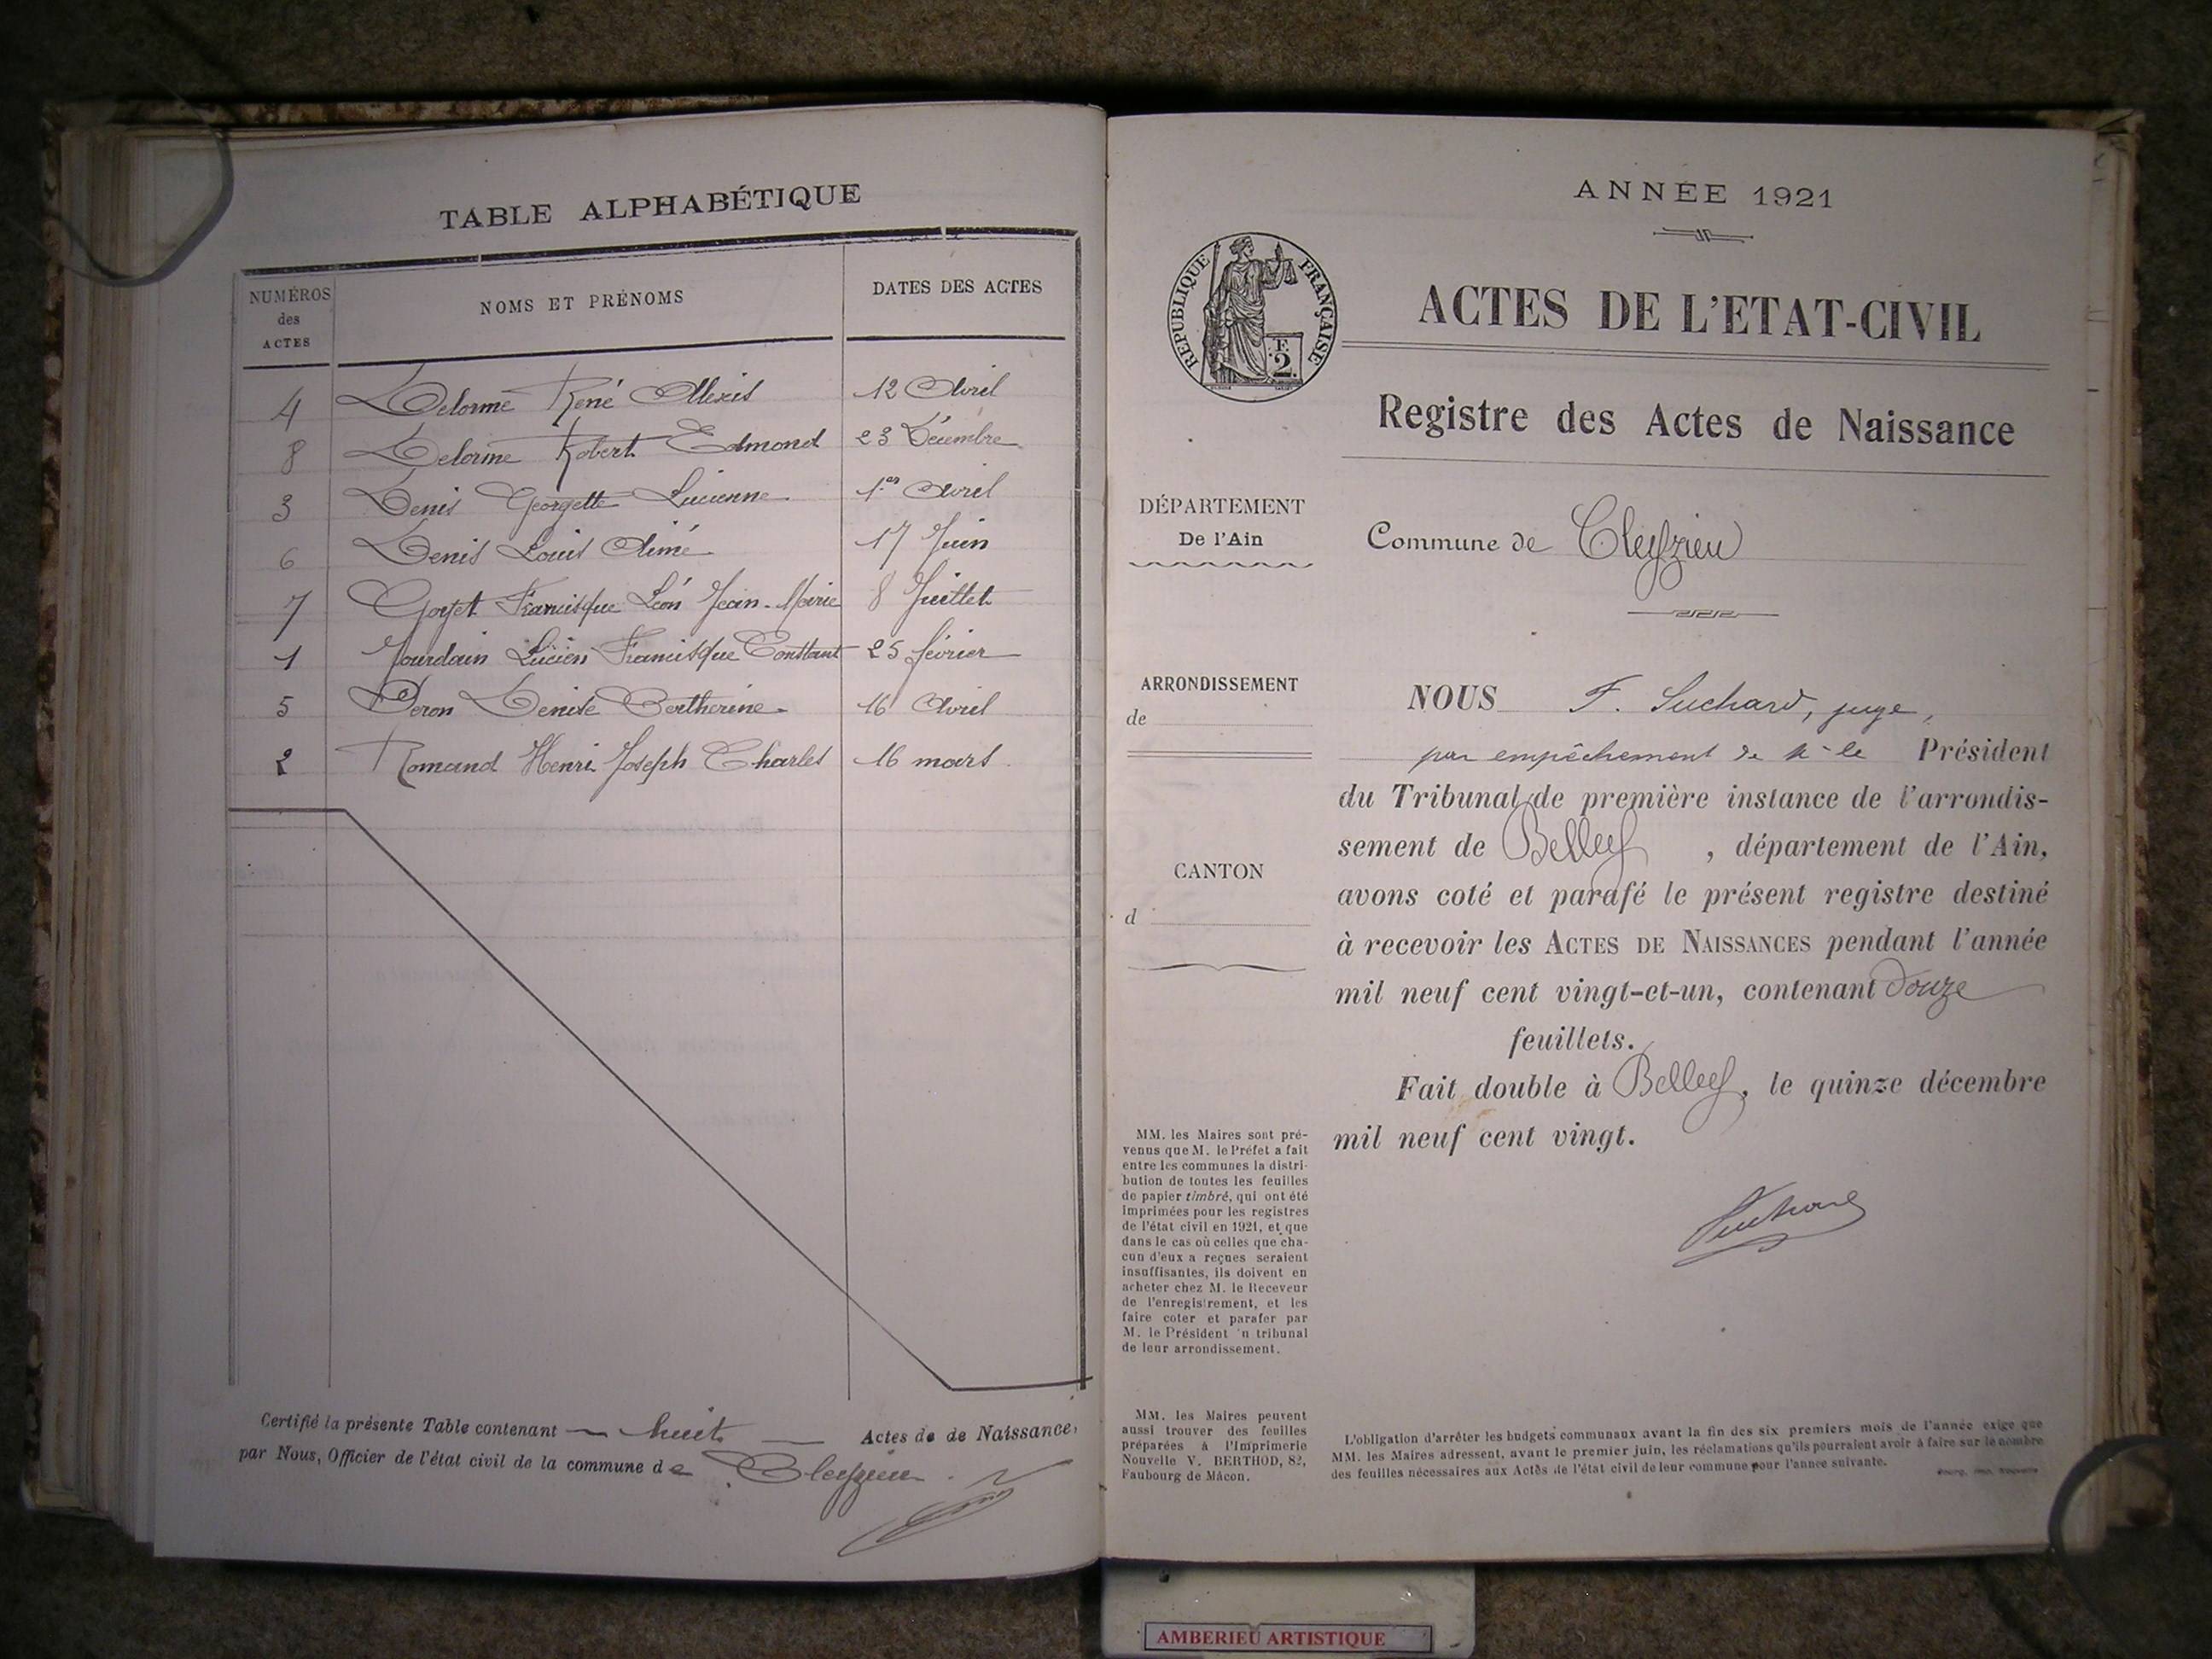 TABLE ALPHABÉTIQUE
NUMÉROS des ACTES NOMS ET PRÉNOMS DATES DES ACTES
4 Delorme René Alexis 12 Avril
8 Delorme Robert Edmond 23 Décembre
3 Denis Georgette Lucienne 1er Avril
6 Denis Louis Aimé 17 Juin
7 Goyet Francisque Léon Jean-Marie 8 Juillet
1 Jourdain Lucien Francisque Constant 25 février
5 Peron Denise 16 Avril
2 Romand Henri Joseph Charles 16 mars
Certifié la présente Table contenant huit Actes de de Naissance,
par Nous, Officier de l'état civil de la commune de Cleyzieu
ANNÉE 1921
RÉPUBLIQUE FRANÇAISE
F.
2.
ACTES DE L'ETAT-CIVIL
Registre des Actes de Naissance
DÉPARTEMENT
De l'Ain
Commune de Cleyzieu
ARRONDISSEMENT
de
CANTON
d
NOUS F. Suchard, juge,
par empêchement de M. le Président
du Tribunal de première instance de l'arrondis-
sement de Belley, département de l'Ain,
avons coté et parafé le présent registre destiné
à recevoir les ACTES DE NAISSANCES pendant l'année
mil neuf cent vingt-et-un, contenant Douze
feuillets.
Fait double à Belley, le quinze décembre
mil neuf cent vingt.
Suchard
MM. les Maires sont pré-
venus que M. le Préfet a fait
entre les communes la distri-
bution de toutes les feuilles
de papier timbré, qui ont été
imprimées pour les registres
de l'état civil en 1921, et que
dans le cas où celles que cha-
cun d'eux a reçues seraient
insuffisantes, ils doivent en
acheter chez M. le Receveur
de l'enregistrement, et les
faire coter et parafer par
M. le Président 'n tribunal
de leur arrondissement.
MM. les Maires peuvent
aussi trouver des feuilles
préparées à l'Imprimerie
Nouvelle V. BERTHOD, 82,
Faubourg de Mâcon.
L'obligation d'arrêter les budgets communaux avant la fin des six premiers mois de l'année exige que
MM. les Maires adressent, avant le premier juin, les réclamations qu'ils pourraient avoir à faire sur le nombre
des feuilles nécessaires aux Actes de l'état civil de leur commune pour l'année suivante.
AMBERIEU ARTISTIQUE